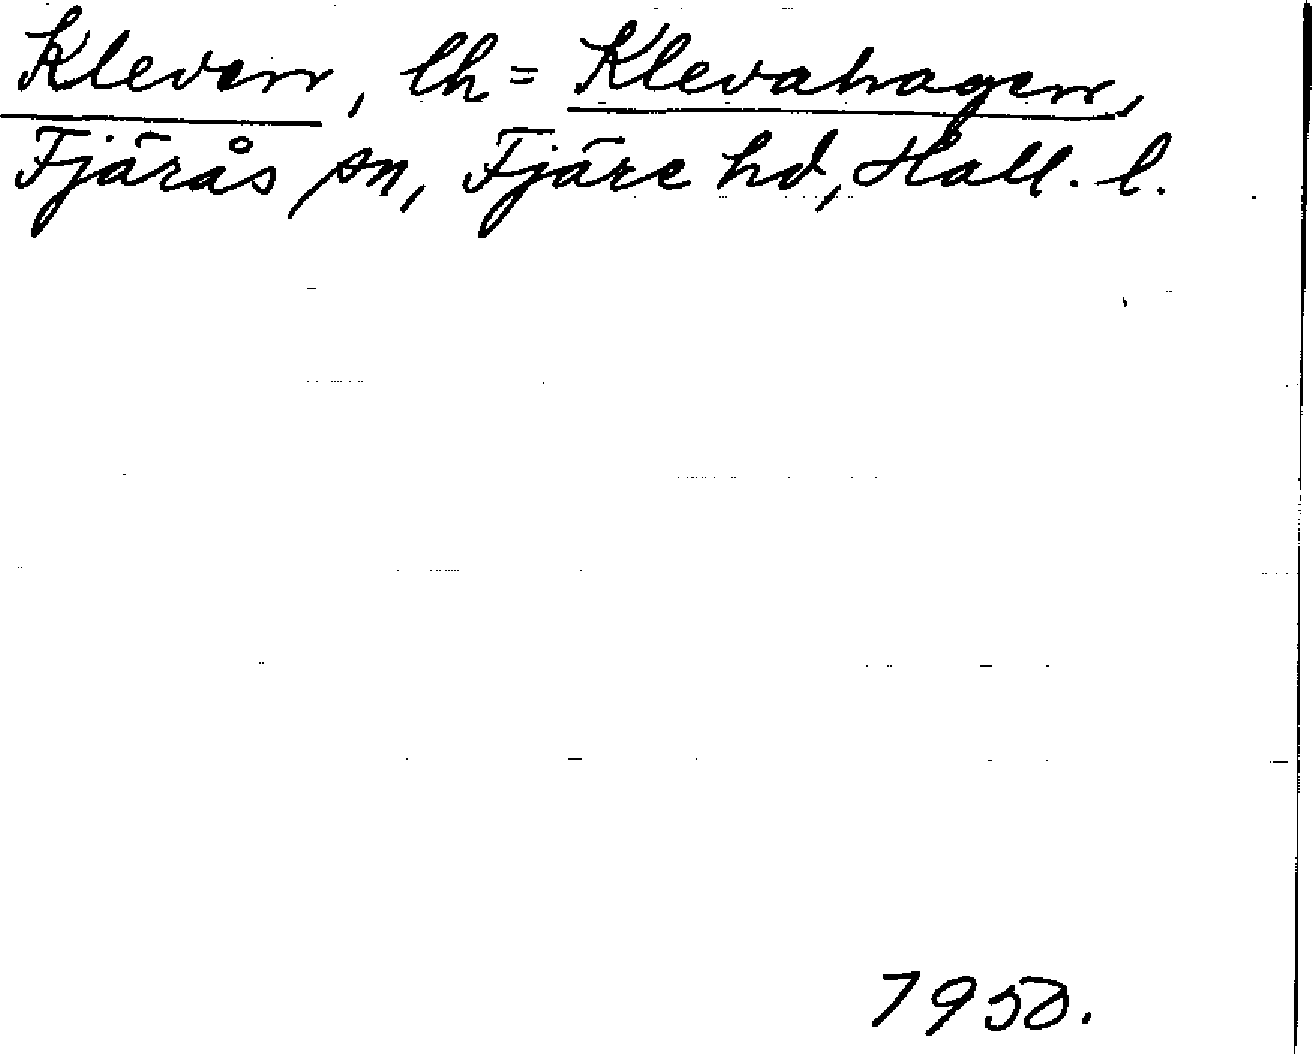 Kleven, lh = Klevahagen,
Fjärås sn, Fjäre hd, Hall. l.
1950.